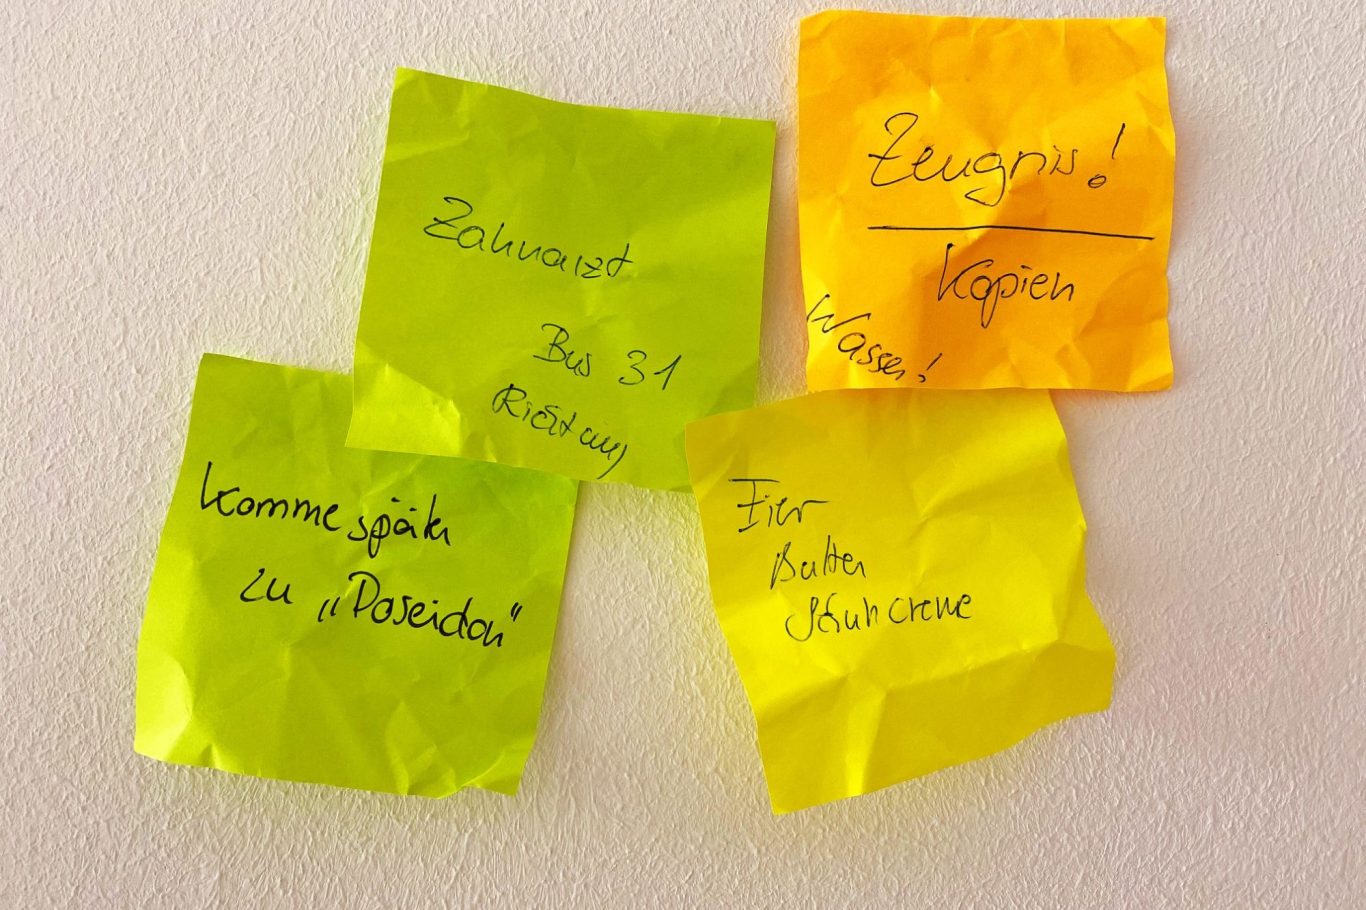 Zahnarzt
Bus 31
Richtung
Zeugnis!
Kopien
Wasser!
Komme später
zu „Poseidon“
Eier
Butter
Schuhcreme